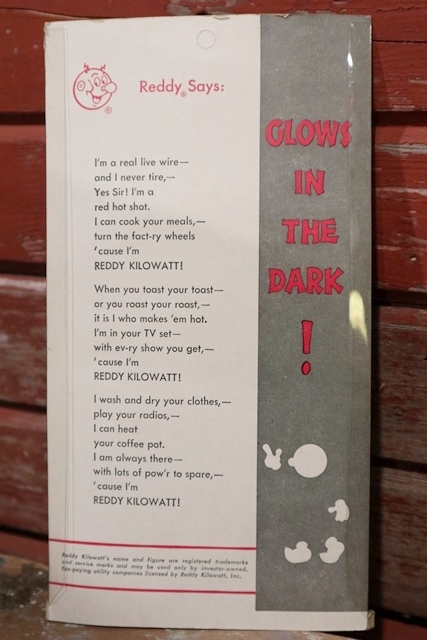 Reddy® Says:
I'm a real live wire—
and I never tire,—
Yes Sir! I'm a
red hot shot.
I can cook your meals,—
turn the fact-ry wheels
'cause I'm
REDDY KILOWATT!
When you toast your toast—
or you roast your roast,—
it is I who makes 'em hot.
I'm in your TV set—
with ev-ry show you get,—
'cause I'm
REDDY KILOWATT!
I wash and dry your clothes,—
play your radios,—
I can heat
your coffee pot.
I am always there—
with lots of pow'r to spare,—
'cause I'm
REDDY KILOWATT!
Reddy Kilowatt's name and figure are registered trademarks
and service marks and may be used only by investor-owned,
tax-paying utility companies licensed by Reddy Kilowatt, Inc.
®
GLOWS
IN
THE
DARK
!